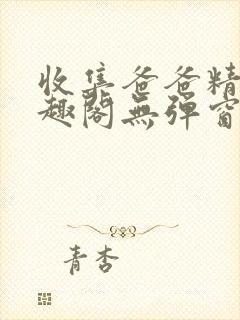 收集爸爸精
趣閣無彈窗
青杏